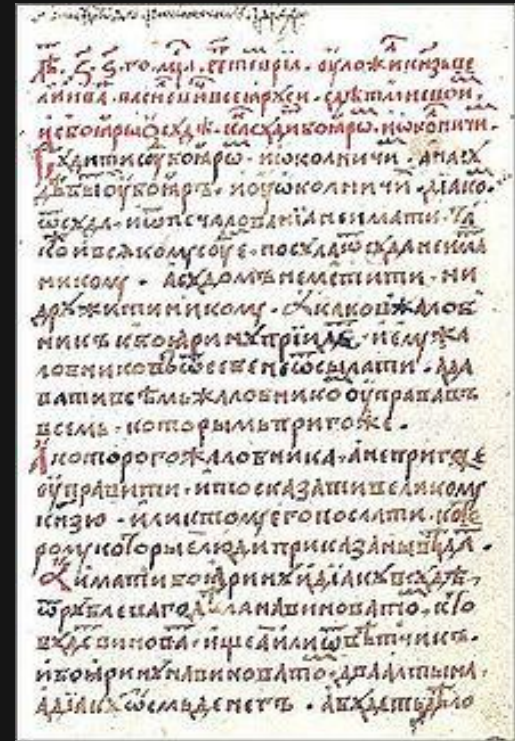 лѣ, ҂з҃ ѕ҃ го, мц҃а септеврїа, оуложи кнѧзь ве
ликїи іва васиⷧевиⷱ всеѧ рꙋси с дѣтми своими
и с боꙗры ѡ сꙋдѣ, каⷦ сꙋдити боꙗрѡⷨ, и ѡколничиⷨ.
Сꙋдити сꙋⷣ боꙗрѡⷨ, и ѡколничиⷨ, а на сꙋ
дѣ быти оу боꙗръ, и оу ѡколничиⷯ дїако
ѿ сꙋда, и ѿ печалованїа не имати, та
кои всѧкомꙋ сꙋдїе, посꙋла ѿ сꙋда не има
никомꙋ, а сꙋдомъ не мстити, ни
дрꙋжити никомꙋ, А каков жалоⷠ
никъ к боꙗринꙋ прїидеⷮ, и емꙋ жа
лобниковъ ѿ себе не ѿсылати, а да
вати всѣмъ жалобникоⷨ оуправа въ
всемъ, которымъ пригоже.
А которого жалобника, а не пригоже
оуправити, и то сказати великомꙋ
кнѧзю, или к томꙋ его послати, кото
ромꙋ которые люди приказаны вѣдаⷮ.
А имати боꙗринꙋ и дїакꙋ в сꙋдѣ
ѿ рꙋблеваго дѣла на виноватоⷨ, кто
бꙋдет виноваⷮ, ищеа или ѿвѣтчикъ,
и боꙗринꙋ на виноватоⷨ, два алтына,
а дїакꙋ ѡсмь денегъ, а бꙋдетъ дѣло